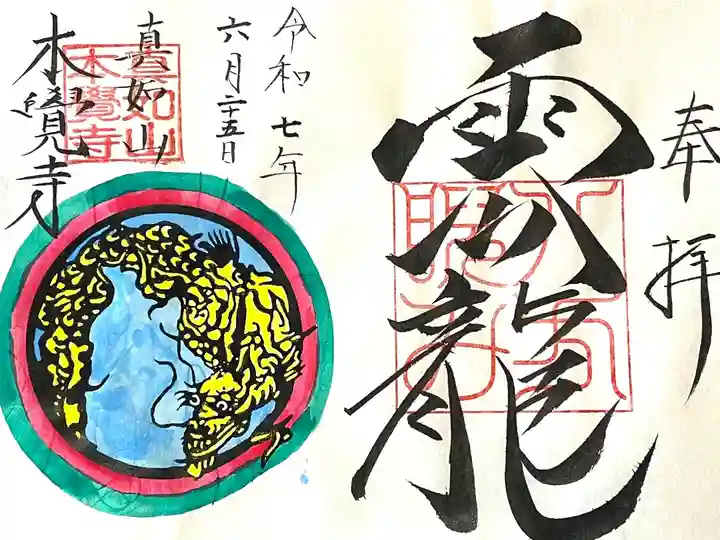 奉拝
雲龍
令和七年
六月二十五日
真如山
本覺寺
真如山
本覺寺